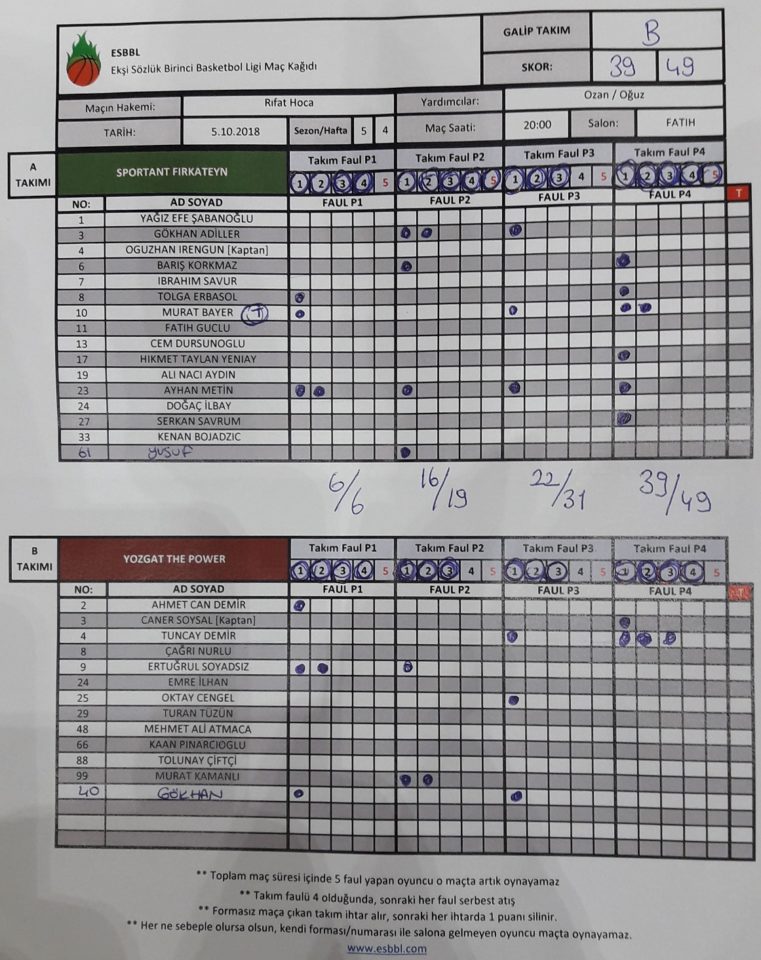 ESBBL
Ekşi Sözlük Birinci Basketbol Ligi Maç Kağıdı
GALİP TAKIM B
SKOR: 39 49
Maçın Hakemi: Rıfat Hoca Yardımcılar: Ozan / Oğuz
TARİH: 5.10.2018 Sezon/Hafta 5 4 Maç Saati: 20:00 Salon: FATIH
A TAKIMI SPORTANT FIRKATEYN Takım Faul P1 Takım Faul P2 Takım Faul P3 Takım Faul P4
1 2 3 4 5 1 2 3 4 5 1 2 3 4 5 1 2 3 4 5
NO: AD SOYAD FAUL P1 FAUL P2 FAUL P3 FAUL P4 T
1 YAĞIZ EFE ŞABANOĞLU
3 GÖKHAN ADİLLER
4 OGUZHAN IRENGUN [Kaptan]
6 BARIŞ KORKMAZ
7 IBRAHIM SAVUR
8 TOLGA ERBASOL
10 MURAT BAYER T
11 FATIH GUCLU
13 CEM DURSUNOGLU
17 HIKMET TAYLAN YENIAY
19 ALI NACI AYDIN
23 AYHAN METİN
24 DOĞAÇ İLBAY
27 SERKAN SAVRUM
33 KENAN BOJADZIC
61 YUSUF
6/6 16/19 22/31 39/49
B TAKIMI YOZGAT THE POWER Takım Faul P1 Takım Faul P2 Takım Faul P3 Takım Faul P4
1 2 3 4 5 1 2 3 4 5 1 2 3 4 5 1 2 3 4 5
NO: AD SOYAD FAUL P1 FAUL P2 FAUL P3 FAUL P4 T
2 AHMET CAN DEMİR
3 CANER SOYSAL [Kaptan]
4 TUNCAY DEMİR
8 ÇAĞRI NURLU
9 ERTUĞRUL SOYADSIZ
24 EMRE İLHAN
25 OKTAY CENGEL
29 TURAN TÜZÜN
48 MEHMET ALİ ATMACA
66 KAAN PINARCIOGLU
88 TOLUNAY ÇİFTÇİ
99 MURAT KAMANLI
40 GÖKHAN
** Toplam maç süresi içinde 5 faul yapan oyuncu o maçta artık oynayamaz
** Takım faulü 4 olduğunda, sonraki her faul serbest atış
** Formasız maça çıkan takım ihtar alır, sonraki her ihtarda 1 puanı silinir.
** Her ne sebeple olursa olsun, kendi forması/numarası ile salona gelmeyen oyuncu maçta oynayamaz.
www.esbbl.com